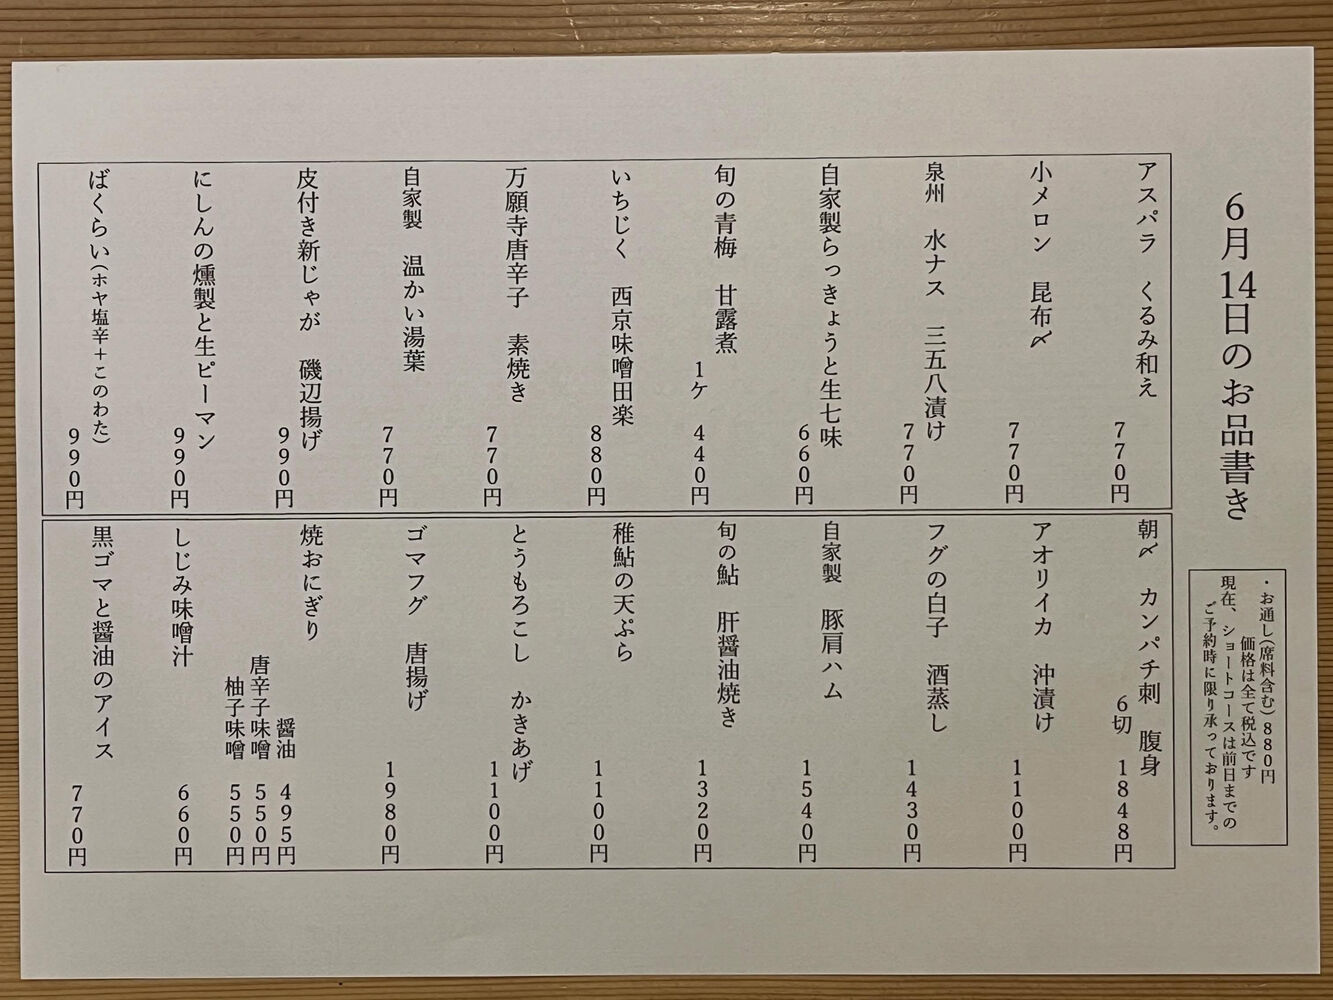 6月14日のお品書き
・お通し(席料含む)880円
価格は全て税込です
現在、ショートコースは前日までの
ご予約時に限り承っております。
アスパラ　くるみ和え
770円
小メロン　昆布〆
770円
泉州　水ナス　三五八漬け
770円
自家製らっきょうと生七味
660円
旬の青梅　甘露煮
1ケ　440円
いちじく　西京味噌田楽
880円
万願寺唐辛子　素焼き
770円
自家製　温かい湯葉
770円
皮付き新じゃが　磯辺揚げ
990円
にしんの燻製と生ピーマン
990円
ばくらい(ホヤ塩辛+このわた)
990円
朝〆　カンパチ刺　腹身
6切　1848円
アオリイカ　沖漬け
1100円
フグの白子　酒蒸し
1430円
自家製　豚肩ハム
1540円
旬の鮎　肝醤油焼き
1320円
稚鮎の天ぷら
1100円
とうもろこし　かきあげ
1100円
ゴマフグ　唐揚げ
1980円
焼おにぎり
醤油　495円
唐辛子味噌　550円
柚子味噌　550円
しじみ味噌汁
660円
黒ゴマと醤油のアイス
770円